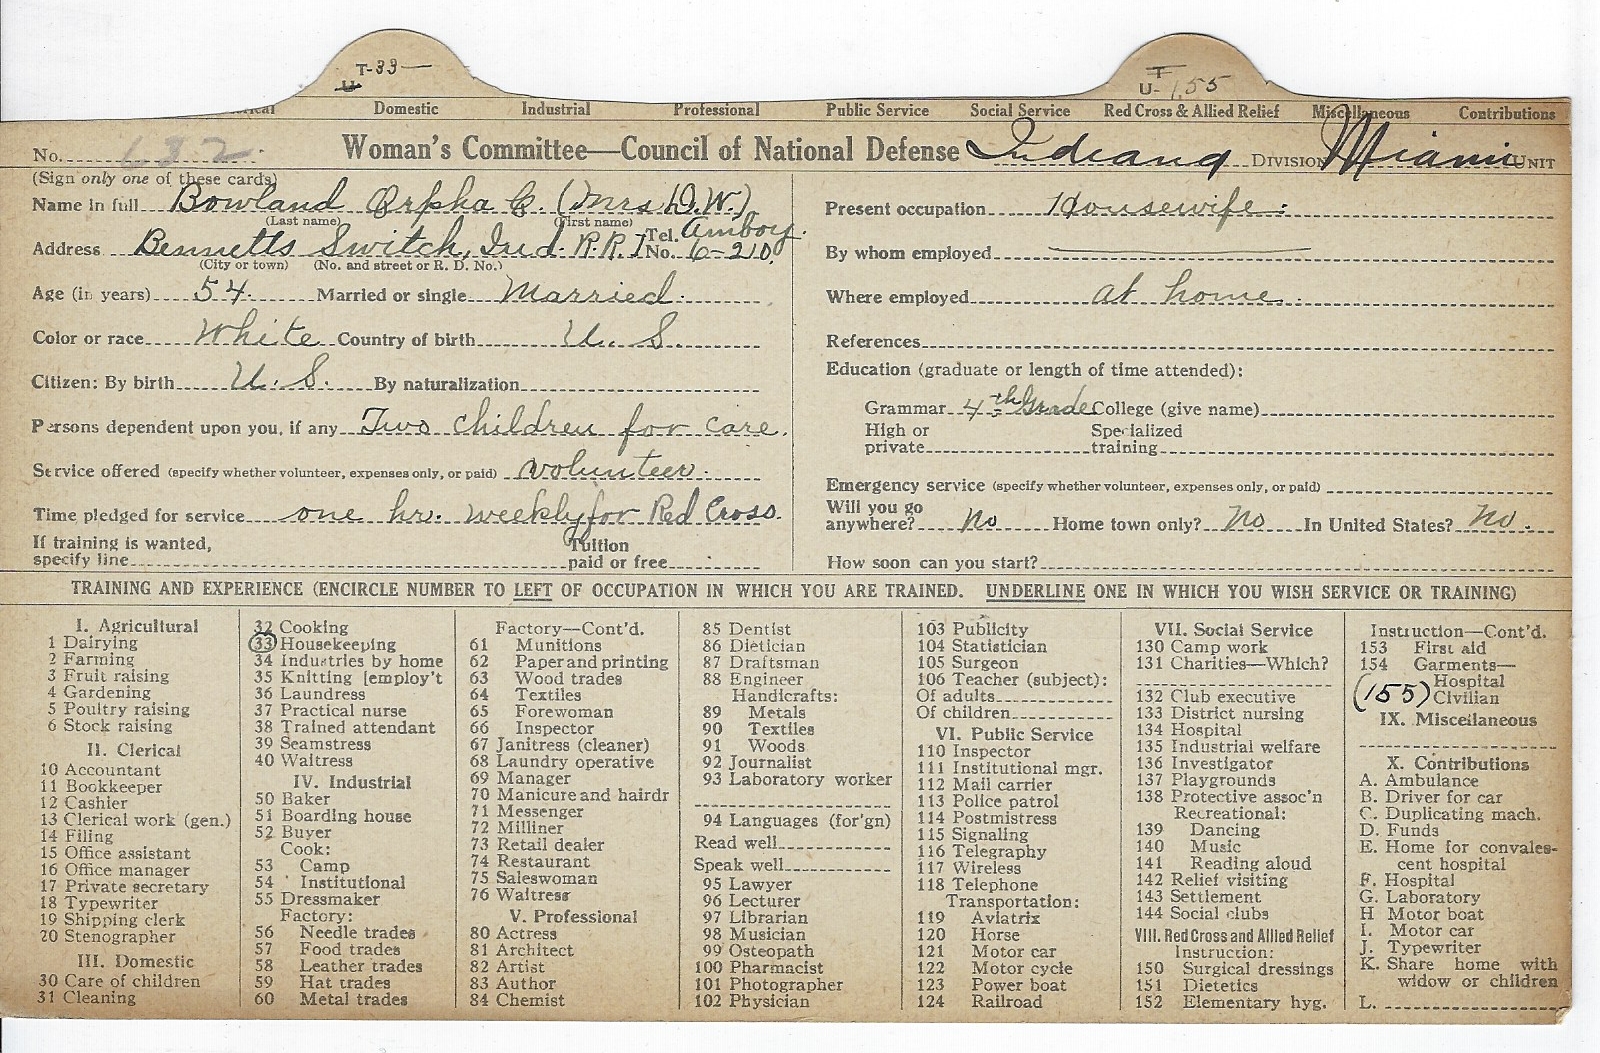 T-33—
U
T
U- 155
Domestic Industrial Professional Public Service Social Service Red Cross & Allied Relief Miscellaneous Contributions
No. 132 Woman's Committee—Council of National Defense Indiana DIVISION Miami UNIT
(Sign only one of these cards)
Name in full Bowland Orpha C. (Mrs. D.W.)
(Last name) (First name)
Address Bennetts Switch, Ind. R.R.1 Tel. No. Amboy 6-210.
(City or town) (No. and street or R. D. No.)
Age (in years) 54. Married or single Married.
Color or race White Country of birth U. S.
Citizen: By birth U. S. By naturalization
Persons dependent upon you, if any Two children for care.
Service offered (specify whether volunteer, expenses only, or paid) volunteer.
Time pledged for service one hr. weekly for Red Cross.
If training is wanted, specify line Tuition paid or free
Present occupation Housewife.
By whom employed
Where employed at home.
References
Education (graduate or length of time attended):
Grammar 4th Grade College (give name)
High or private Specialized training
Emergency service (specify whether volunteer, expenses only, or paid)
Will you go anywhere? No Home town only? No In United States? No.
How soon can you start?
TRAINING AND EXPERIENCE (ENCIRCLE NUMBER TO LEFT OF OCCUPATION IN WHICH YOU ARE TRAINED. UNDERLINE ONE IN WHICH YOU WISH SERVICE OR TRAINING)
I. Agricultural
1 Dairying
2 Farming
3 Fruit raising
4 Gardening
5 Poultry raising
6 Stock raising
II. Clerical
10 Accountant
11 Bookkeeper
12 Cashier
13 Clerical work (gen.)
14 Filing
15 Office assistant
16 Office manager
17 Private secretary
18 Typewriter
19 Shipping clerk
20 Stenographer
III. Domestic
30 Care of children
31 Cleaning
32 Cooking
33 Housekeeping
34 Industries by home
35 Knitting [employ't
36 Laundress
37 Practical nurse
38 Trained attendant
39 Seamstress
40 Waitress
IV. Industrial
50 Baker
51 Boarding house
52 Buyer
Cook:
53 Camp
54 Institutional
55 Dressmaker
Factory:
56 Needle trades
57 Food trades
58 Leather trades
59 Hat trades
60 Metal trades
Factory—Cont'd.
61 Munitions
62 Paper and printing
63 Wood trades
64 Textiles
65 Forewoman
66 Inspector
67 Janitress (cleaner)
68 Laundry operative
69 Manager
70 Manicure and hairdr
71 Messenger
72 Milliner
73 Retail dealer
74 Restaurant
75 Saleswoman
76 Waitress
V. Professional
80 Actress
81 Architect
82 Artist
83 Author
84 Chemist
85 Dentist
86 Dietician
87 Draftsman
88 Engineer
Handicrafts:
89 Metals
90 Textiles
91 Woods
92 Journalist
93 Laboratory worker
94 Languages (for'gn)
Read well
Speak well
95 Lawyer
96 Lecturer
97 Librarian
98 Musician
99 Osteopath
100 Pharmacist
101 Photographer
102 Physician
103 Publicity
104 Statistician
105 Surgeon
106 Teacher (subject):
Of adults
Of children
VI. Public Service
110 Inspector
111 Institutional mgr.
112 Mail carrier
113 Police patrol
114 Postmistress
115 Signaling
116 Telegraphy
117 Wireless
118 Telephone
Transportation:
119 Aviatrix
120 Horse
121 Motor car
122 Motor cycle
123 Power boat
124 Railroad
VII. Social Service
130 Camp work
131 Charities—Which?
132 Club executive
133 District nursing
134 Hospital
135 Industrial welfare
136 Investigator
137 Playgrounds
138 Protective assoc'n
Recreational:
139 Dancing
140 Music
141 Reading aloud
142 Relief visiting
143 Settlement
144 Social clubs
VIII. Red Cross and Allied Relief
Instruction:
150 Surgical dressings
151 Dietetics
152 Elementary hyg.
Instruction—Cont'd.
153 First aid
154 Garments—
Hospital
(155) Civilian
IX. Miscellaneous
X. Contributions
A. Ambulance
B. Driver for car
C. Duplicating mach.
D. Funds
E. Home for convales-
cent hospital
F. Hospital
G. Laboratory
H Motor boat
I. Motor car
J. Typewriter
K. Share home with
widow or children
L.